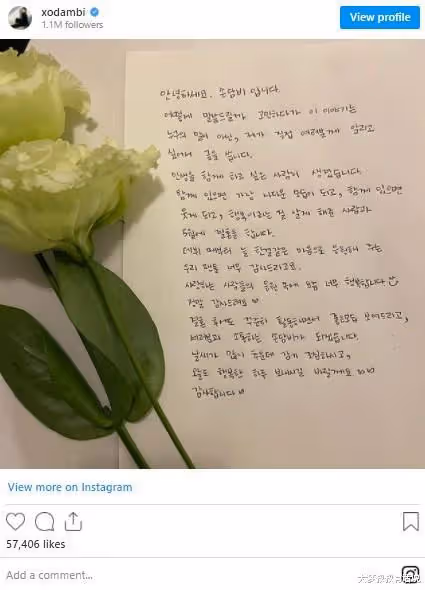 xodambi
1.1M followers
View profile
안녕하세요. 손담비 입니다.
어떻게 말씀드릴까 고민하다가 이 이야기는
누구의 말이 아닌, 제가 직접 여러분께 알리고
싶어서 글을 씁니다.
인생을 함께 하고 싶은 사람이 생겼습니다.
함께 있으면 가장 나다운 모습이 되고, 함께 있으면
웃게 되고, 행복이라는 걸 알게 해준 사람과
5월에 결혼을 합니다.
데뷔 때부터 늘 한결같은 마음으로 응원해 주는
우리 팬들 너무 감사드리고요.
사랑하는 사람들의 응원 속에 요즘 너무 행복합니다
정말 감사드려요 ♡
결혼 후에도 꾸준히 활동하면서 좋은모습 보여드리고,
여러분과 소통하는 손담비가 되겠습니다.
날씨가 많이 추운데 감기 조심하시고,
오늘도 행복한 하루 보내시길 바랄게요 ♡♡
감사합니다 ♡
View more on Instagram
57,406 likes
Add a comment...